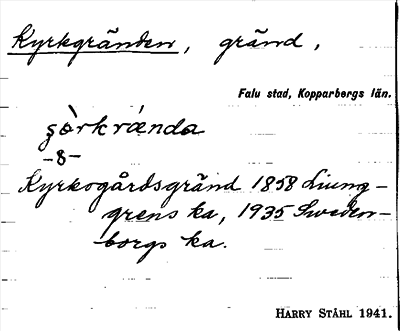 Kyrkgränden, gränd,
Falu stad, Kopparbergs län.
şòrkrǽnda
-8-
Kyrkogårdsgränd 1858 Ljung-
grens ka, 1935 Sweden-
borgs ka.
HARRY STÅHL 1941.